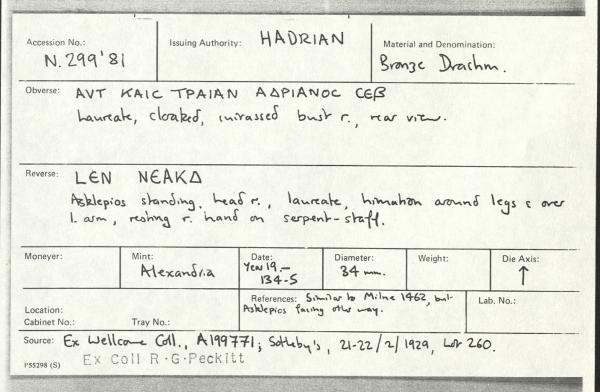 Accession No.: Issuing Authority: HADRIAN Material and Denomination:
N.299'81 Bronze Drachm.
Obverse: ΑVΤ ΚΑΙC ΤΡΑΙΑΝ ΑΔΡΙΑΝΟC CЄΒ
Laureate, cloaked, cuirassed bust r., rear view.
Reverse: LEN ΝΕΑΚΔ
Asklepios standing, head r., laureate, himation around legs & over
l. arm, resting r. hand on serpent-staff.
Moneyer: Mint: Date: Diameter: Weight: Die Axis:
Alexandria Year 19.— 34 mm. ↑
134-5
References: Similar to Milne 1462, but Lab. No.:
Location: Asklepios facing other way.
Cabinet No.: Tray No.:
Source: Ex Wellcome Coll., A199771; Sotheby's, 21-22/2/1929, Lot 260.
Ex Coll R.G.Peckitt
P55298 (S)